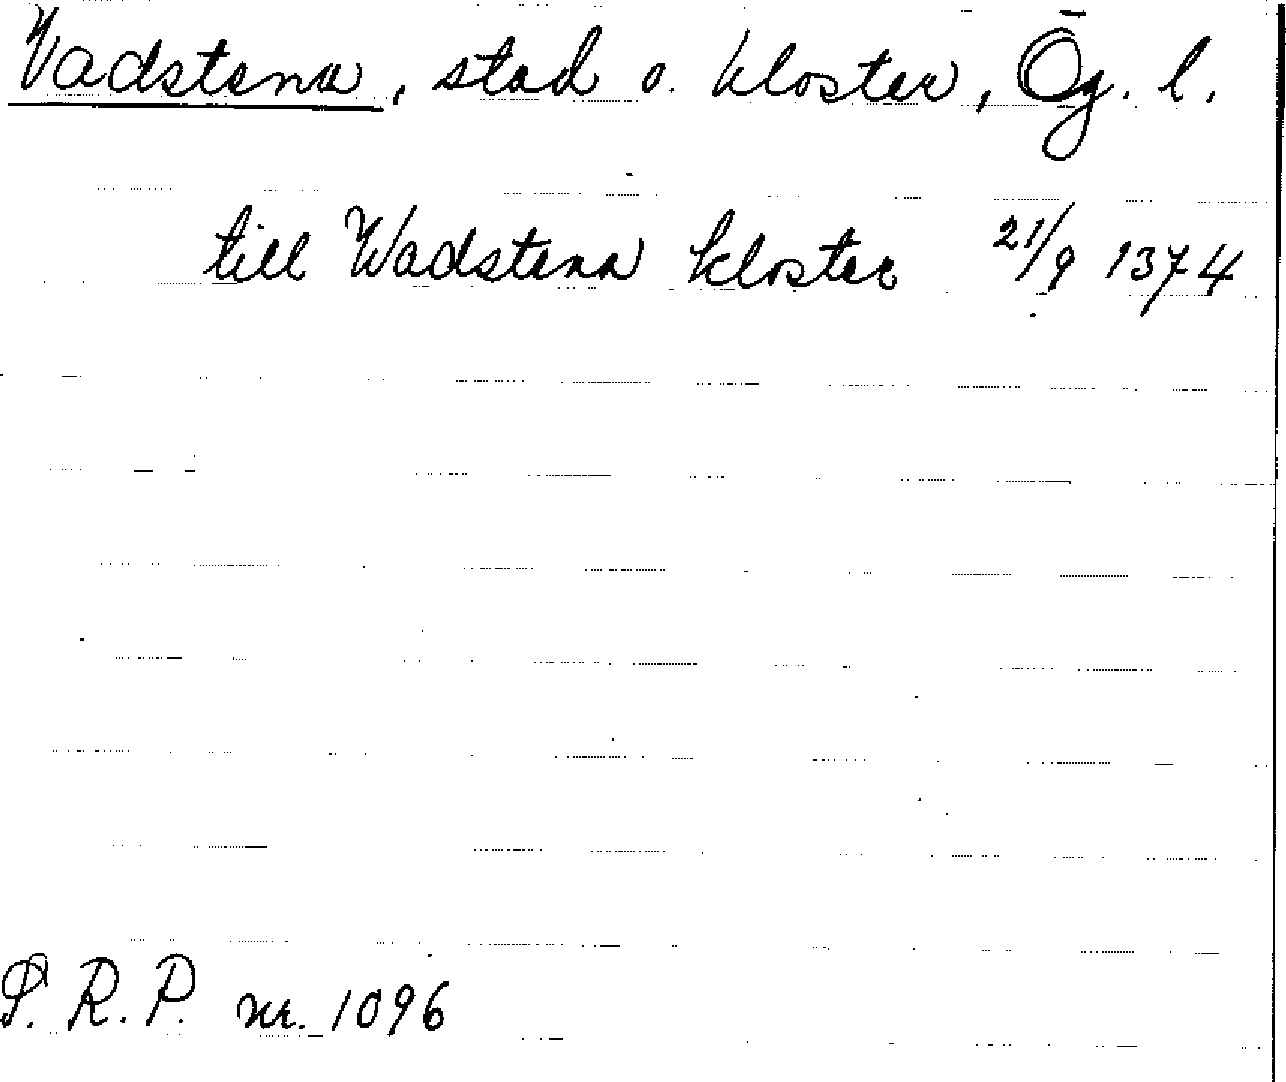 Vadstena, stad o. kloster, Ög. l.
till Wadstena kloster 21/9 1374
S. R. P. nr. 1096